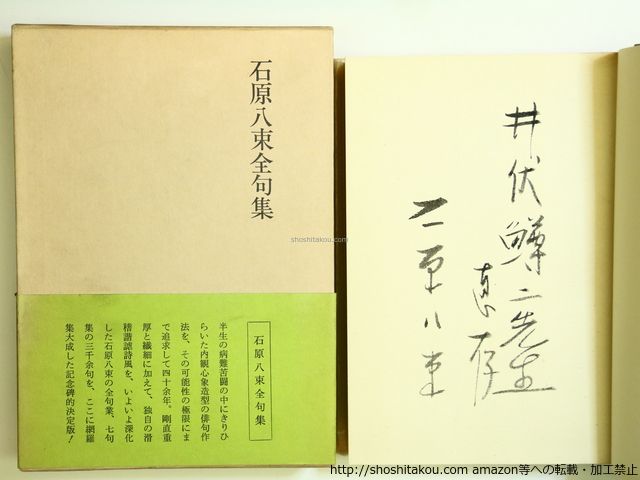 石原八束全句集
石原八束全句集
半生の病難苦闘の中にきりひ
らいた内観心象造型の俳句作
法を、その可能性の極限にま
で追求して四十余年。剛直重
厚と繊細に加えて、独自の滑
稽諧謔詩風を、いよいよ深化
した石原八束の全句業、七句
集の三千余句を、ここに網羅
集大成した記念碑的決定版！
井伏鱒二先生
恵存
石原八束
shoshitakou.com
http://shoshitakou.com amazon等への転載・加工禁止